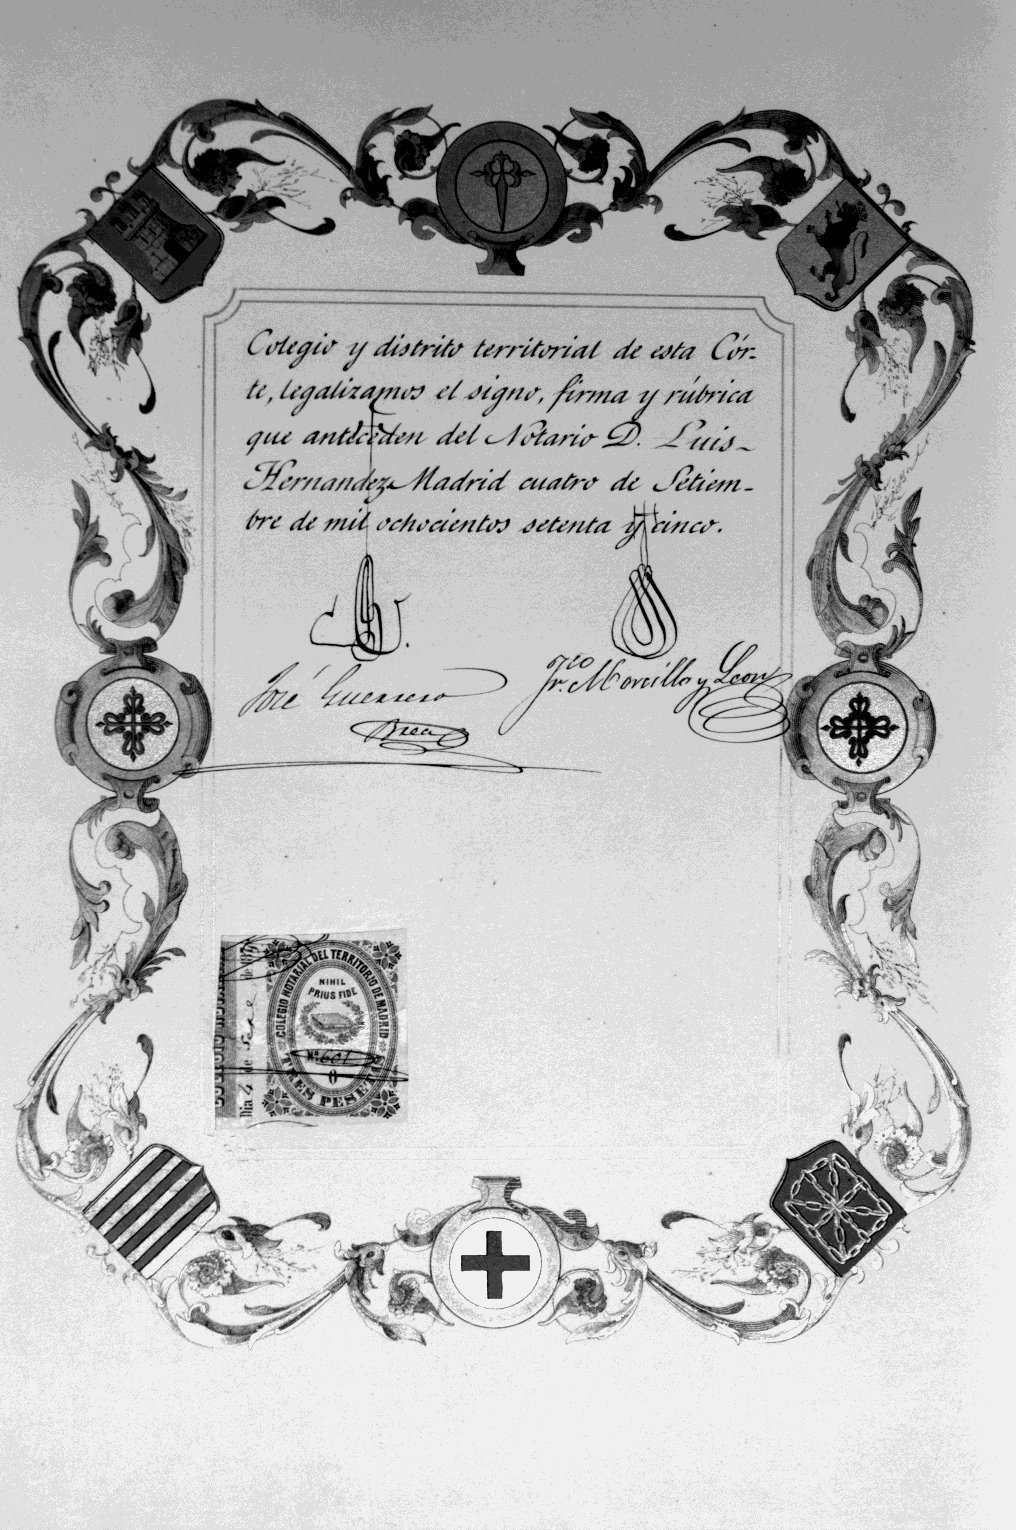 Colegio y distrito territorial de esta Cór-
te, legalizamos el signo, firma y rúbrica
que anteceden del Notario D. Luis
Hernandez Madrid cuatro de Setiem-
bre de mil ochocientos setenta y cinco.
José Guerrero
Brea
Frco. Morcillo y Leon
COLEGIO NOTARIAL DEL TERRITORIO DE MADRID
NIHIL
PRIUS FIDE
Nº 601
TRES PESETAS
Dia 4 de de 187